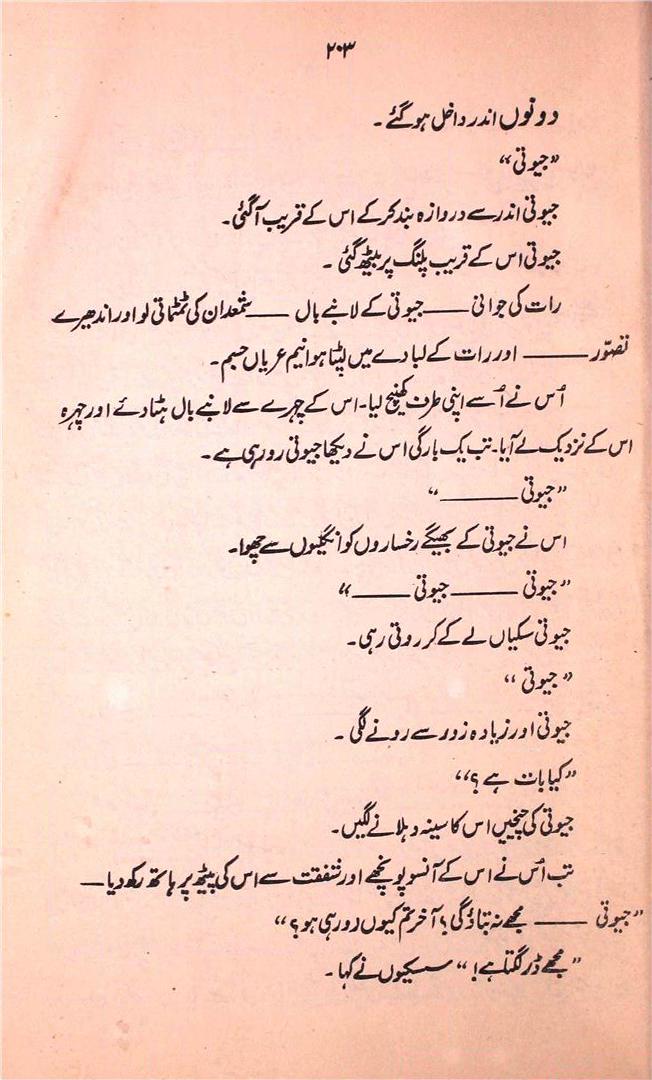 ۲۰۳
دونوں اندر داخل ہو گئے ۔
”جیوتی“
جیوتی اندر سے دروازہ بند کر کے اس کے قریب آگئی۔
جیوتی اس کے قریب پلنگ پر بیٹھ گئی ۔
رات کی جوانی ——— جیوتی کے لانبے بال ——— شمعدان کی ٹمٹماتی لو اور اندھیرے
تصوّر ——— اور رات کے لبادے میں لپٹا ہوا نیم عریاں جسم۔
اُس نے اُسے اپنی طرف کھینچ لیا۔ اس کے چہرے سے لانبے بال ہٹا دئے اور چہرہ
اس کے نزدیک لے آیا۔ تب یک بارگی اس نے دیکھا جیوتی رو رہی ہے۔
”جیوتی ———“
اس نے جیوتی کے بھیگے رخساروں کو انگلیوں سے چھوا۔
”جیوتی ——— جیوتی ———“
جیوتی سسکیاں لے لے کر روتی رہی۔
”جیوتی“
جیوتی اور زیادہ زور سے رونے لگی ۔
”کیا بات ہے ؟“
جیوتی کی چیخیں اس کا سینہ دہلانے لگیں۔
تب اُس نے اس کے آنسو پونچھے اور شفقت سے اس کی پیٹھ پر ہاتھ رکھ دیا —
”جیوتی ——— مجھے نہ بتاؤ گی؟ آخر تم کیوں رو رہی ہو؟“
”مجھے ڈر لگتا ہے!“ سسکیوں نے کہا۔